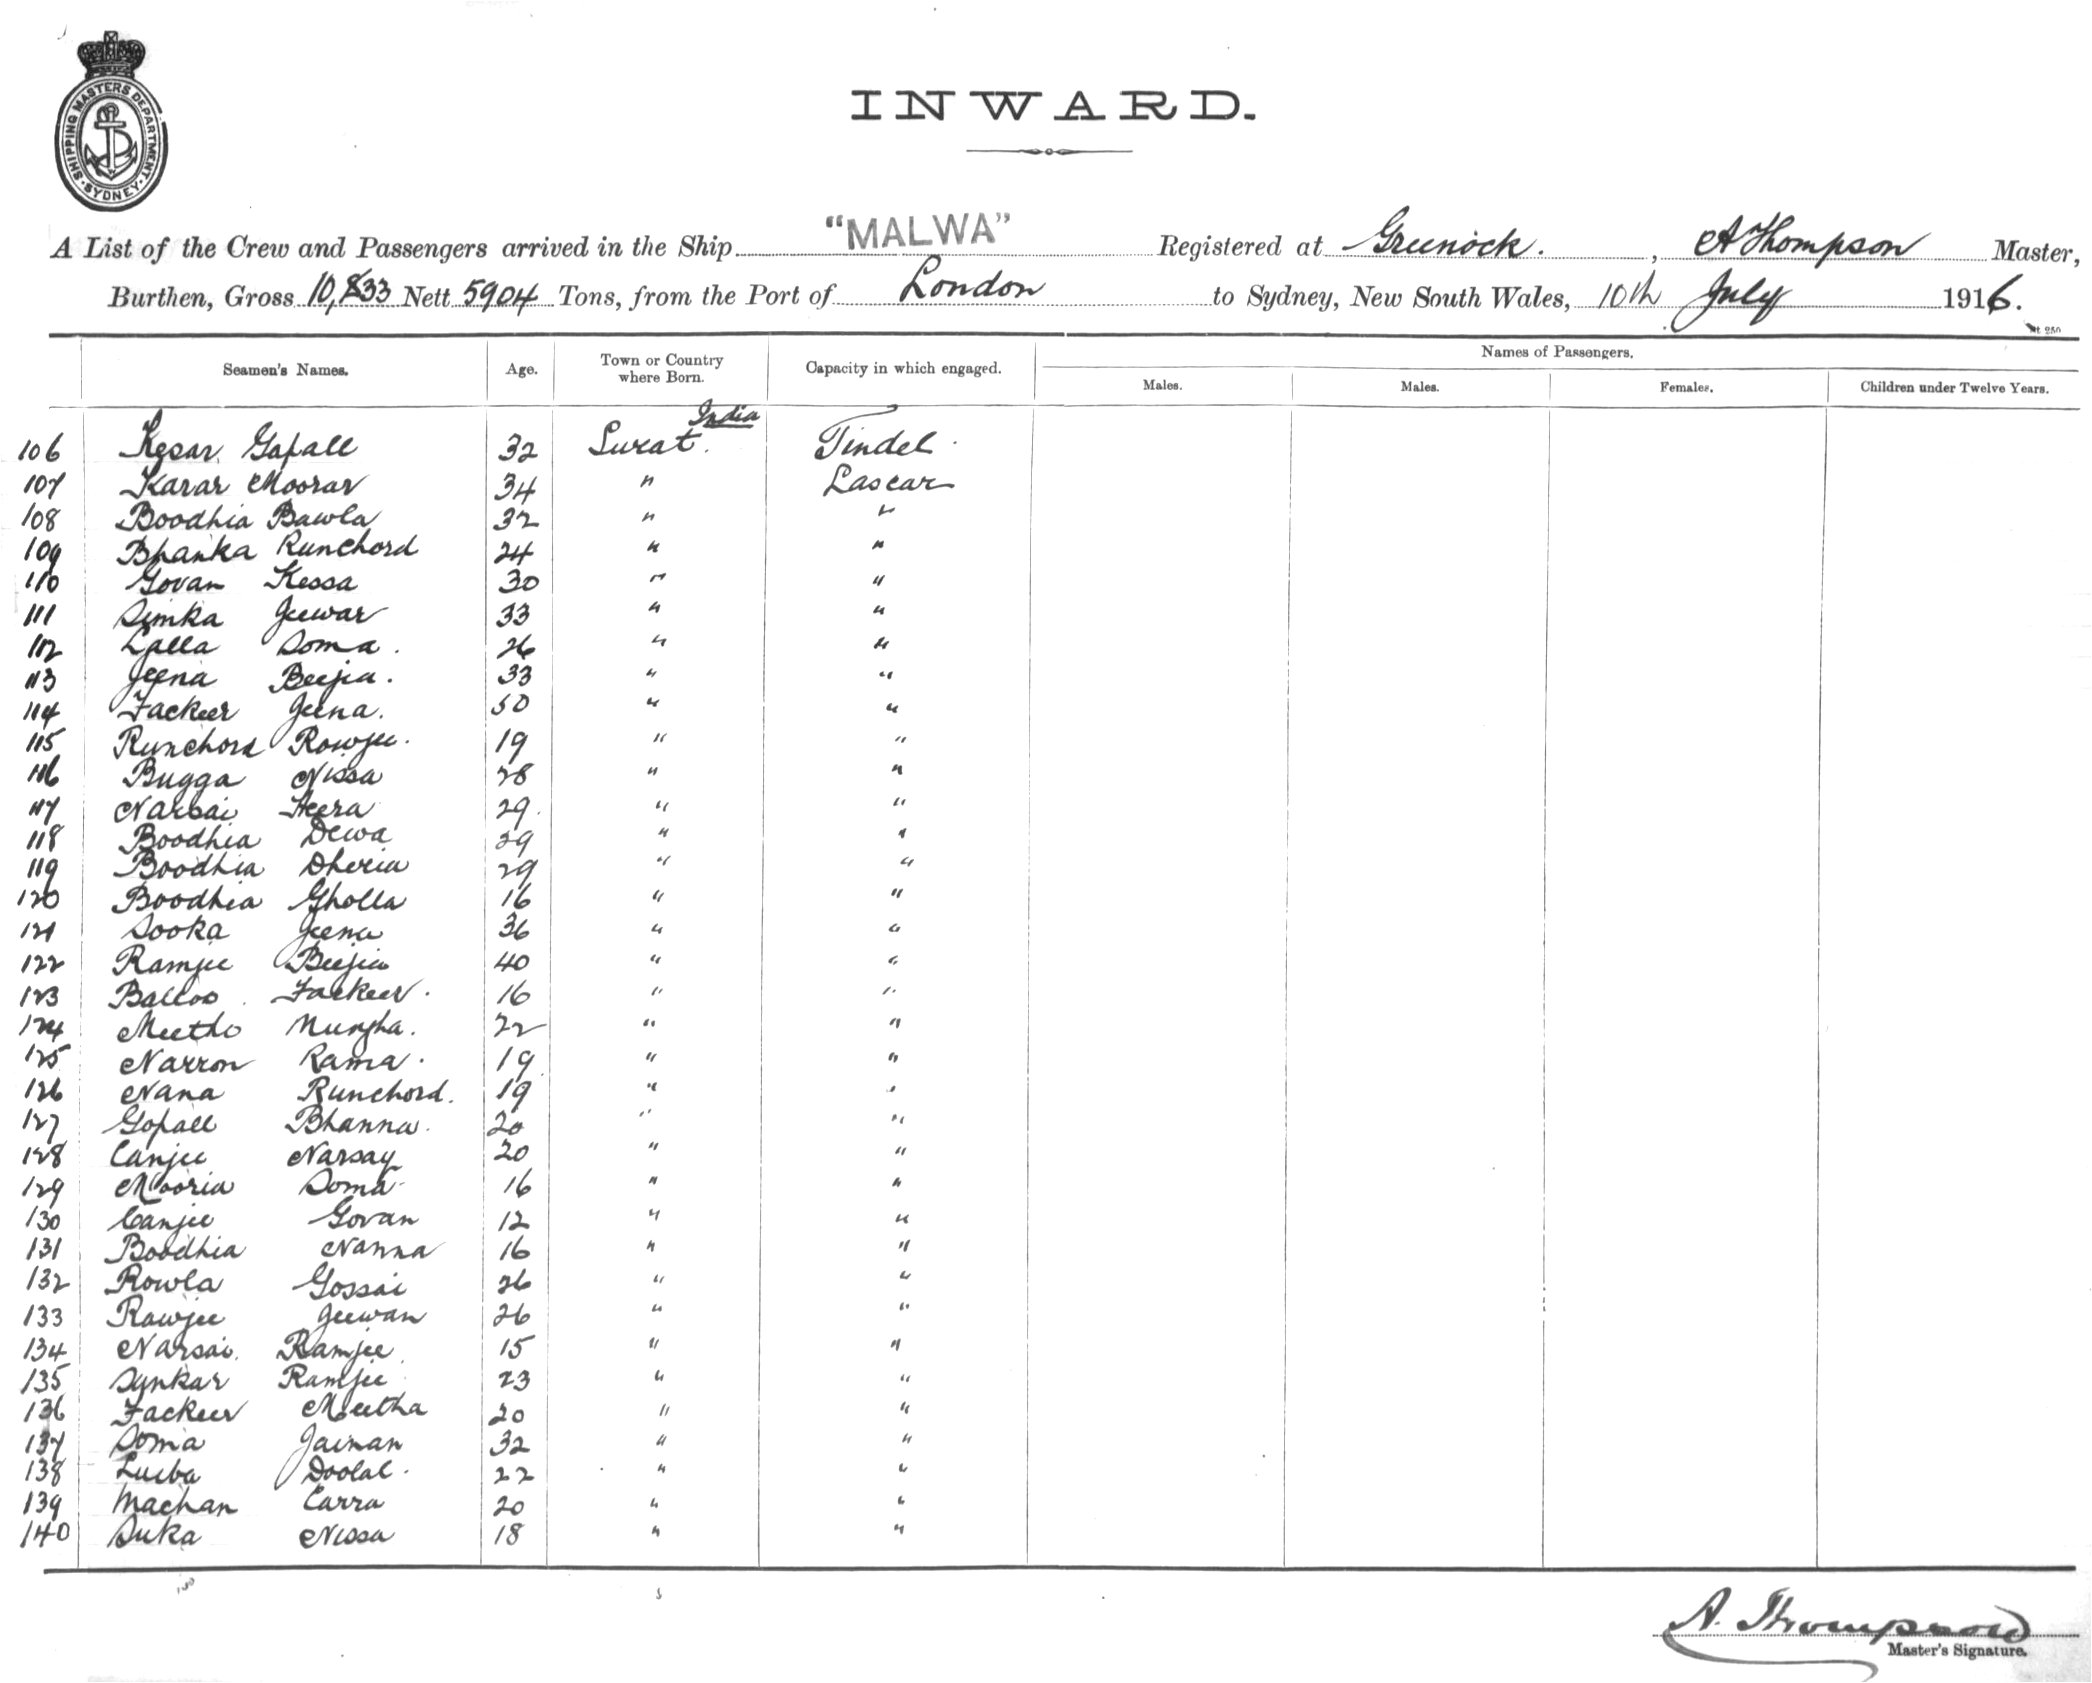 SHIPPING MASTERS DEPARTMENT
SYDNEY
INWARD.
A List of the Crew and Passengers arrived in the Ship "MALWA" Registered at Greenock. , A Thompson Master,
Burthen, Gross 10,833 Nett 5904 Tons, from the Port of London to Sydney, New South Wales, 10th July 1916.
Names of Passengers.
Seamen's Names. Age. Town or Country where Born. Capacity in which engaged. Males. Males. Females. Children under Twelve Years.
India
106 Kesar Gopall 32 Surat. Tindel
107 Karar Moorar 34 " Lascar
108 Boodhia Bawla 32 " "
109 Bhanka Runchord 24 " "
110 Govan Kessa 30 " "
111 Simka Jeewar 33 " "
112 Lalla Soma. 26 " "
113 Jeena Beejia. 33 " "
114 Fackeer Jeena. 50 " "
115 Runchord Rowjee. 19 " "
116 Bugga Nissa 28 " "
117 Narsai Heera 29 " "
118 Boodhia Dewa 29 " "
119 Boodhia Dheria 29 " "
120 Boodhia Gholla 16 " "
121 Sooka Jeena 36 " "
122 Ramjee Beejia 40 " "
123 Balloo Fackeer. 16 " "
124 Meetho Mungha. 22 " "
125 Narron Rama. 19 " "
126 Nana Runchord. 19 " "
127 Gopall Bhanna. 20 " "
128 Canjee Narsay 20 " "
129 Mooria Soma 16 " "
130 Canjee Govan 12 " "
131 Boodhia Nanna 16 " "
132 Rowla Gossai 26 " "
133 Rawjee Jeewan 26 " "
134 Narsai Ramjee 15 " "
135 Synkar Ramjee 23 " "
136 Fackeer Meetha 20 " "
137 Soma Jainan 32 " "
138 Luiba Doolal. 22 " "
139 Machan Carra 20 " "
140 Suka Nissa 18 " "
A. Thompson
Master's Signature.